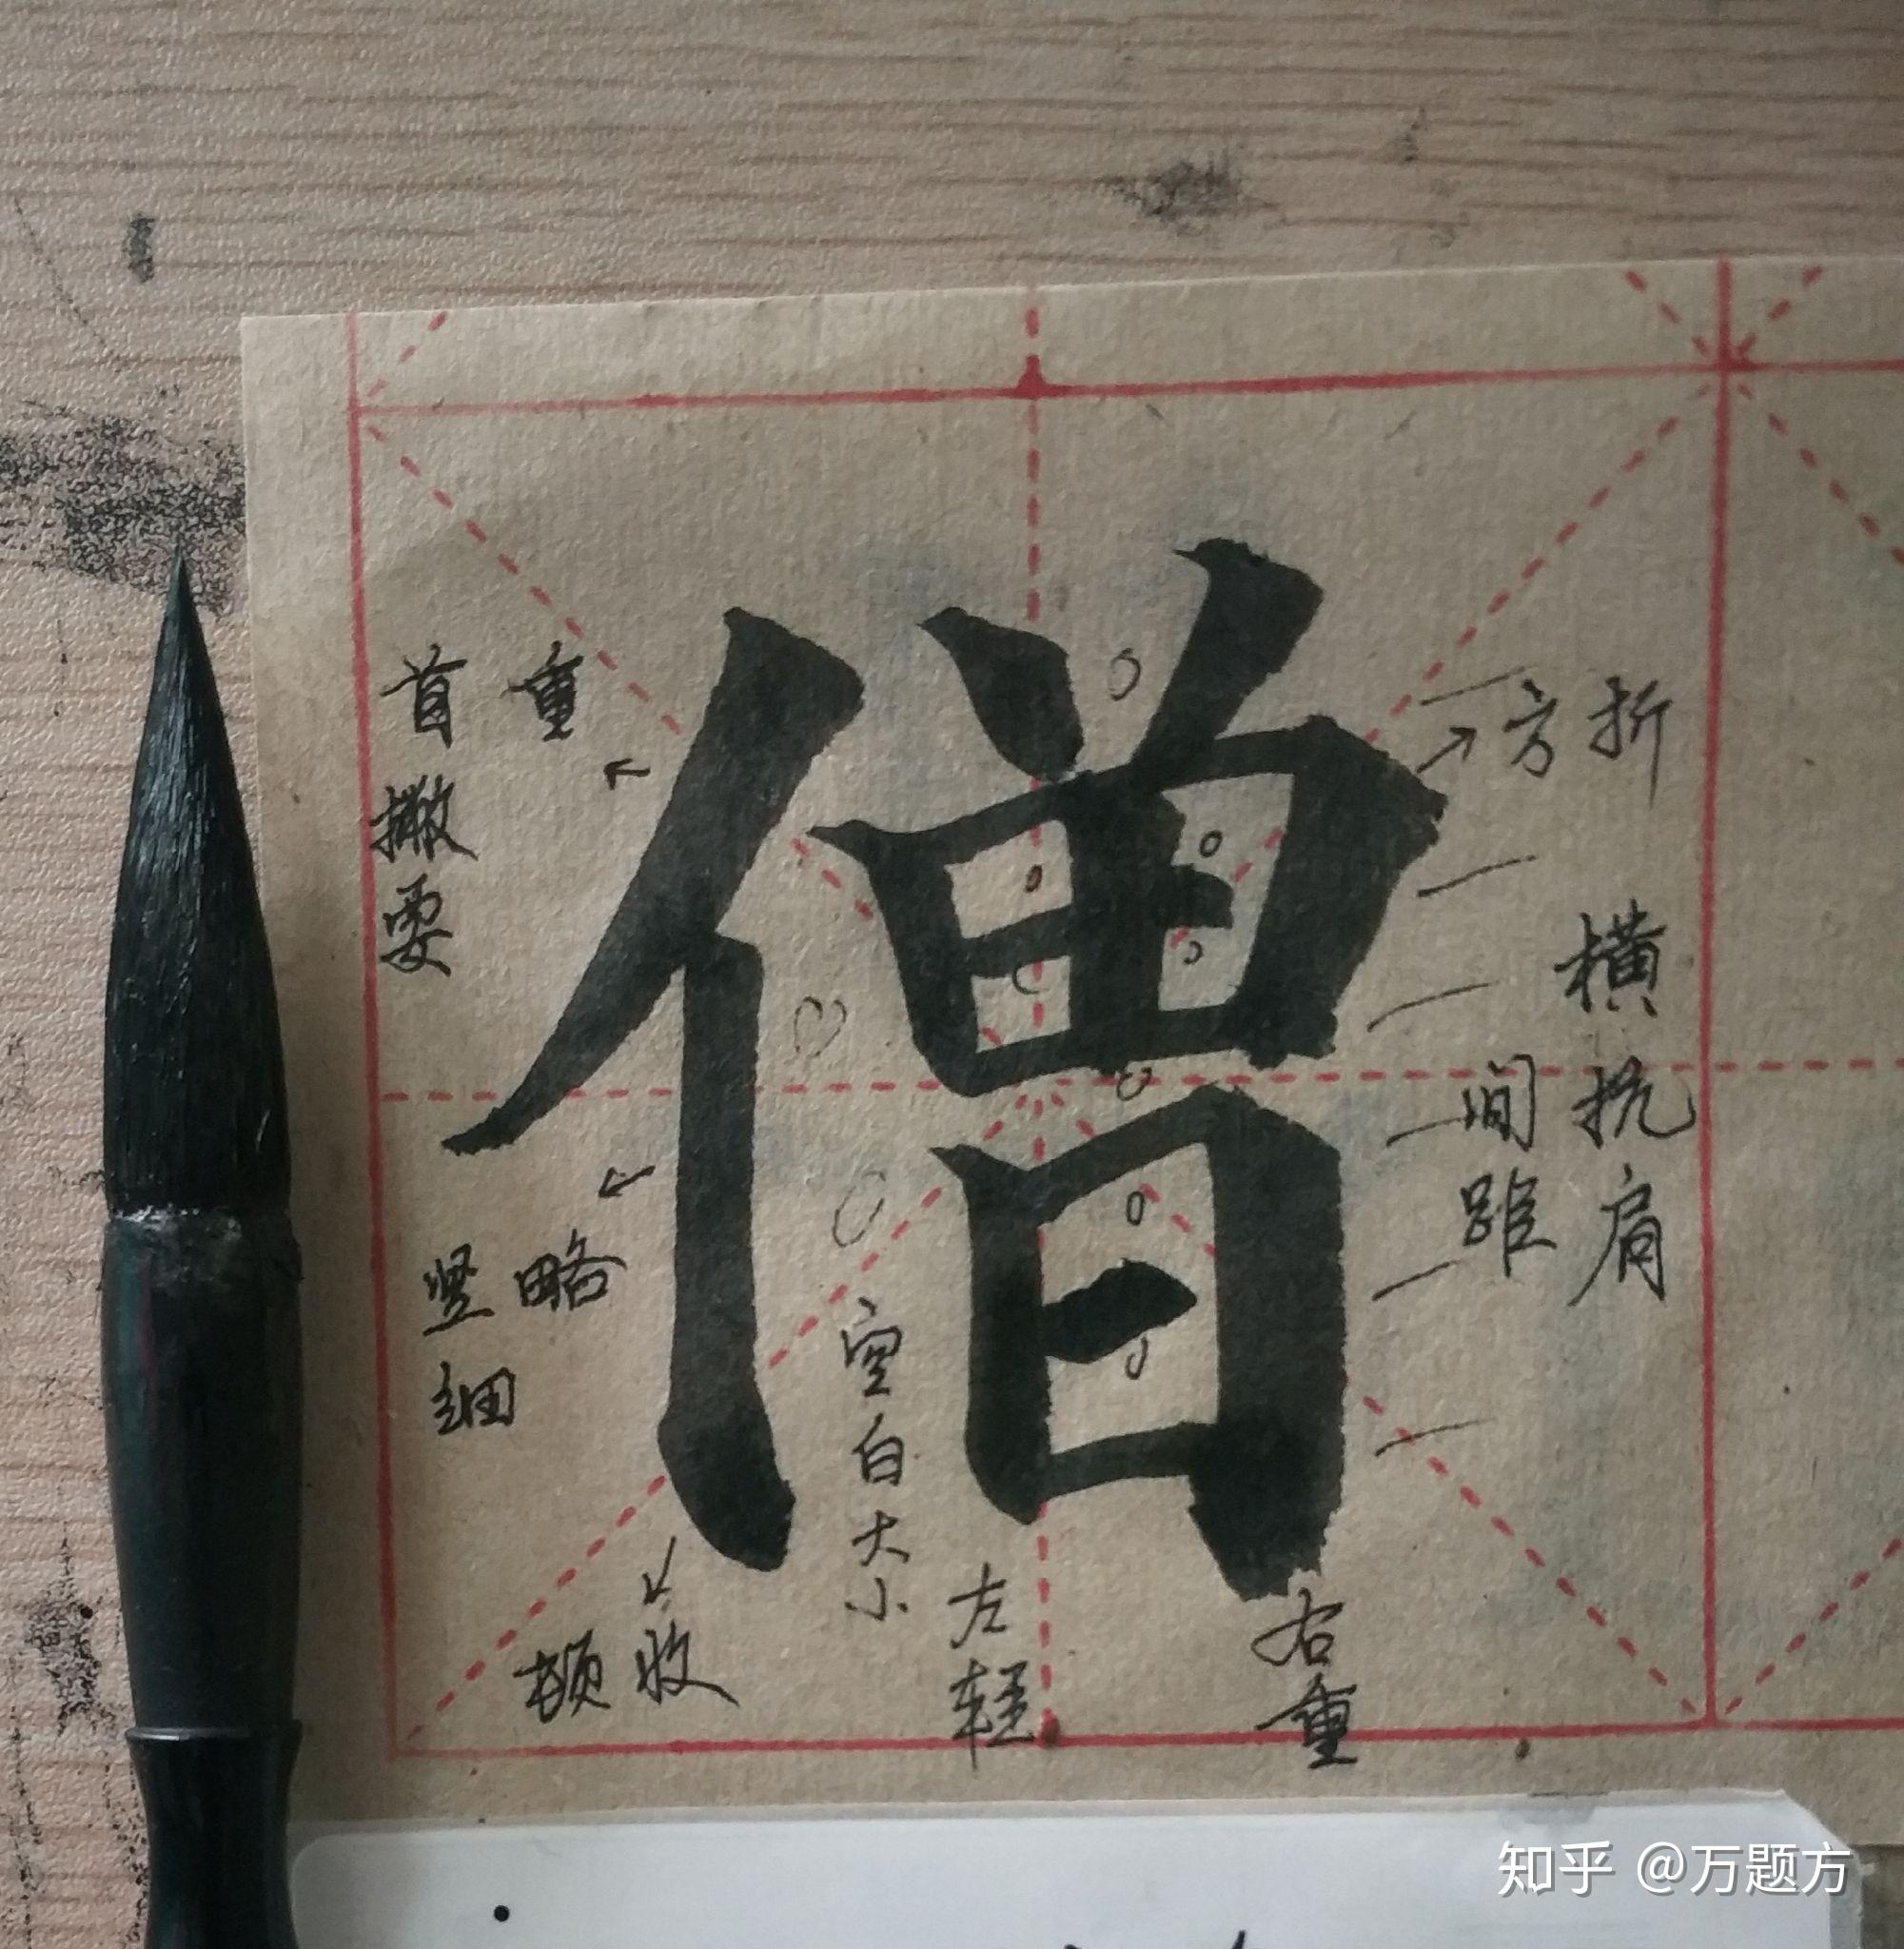 僧
首撇要重
竖略细
顿收
空白大小
左轻
右重
方折
横抗肩
间距
知乎 @万题方